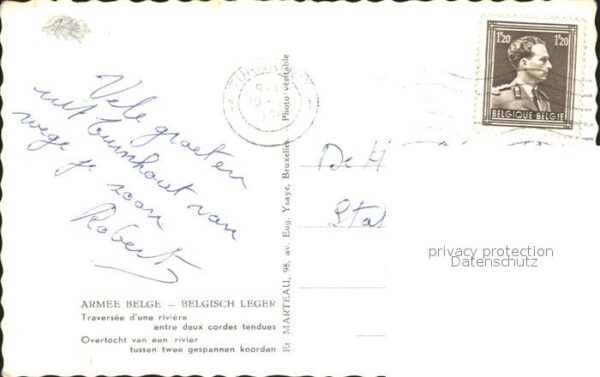 Vele groeten
uit Turnhout van
wege je zoon
Robert
ARMEE BELGE – BELGISCH LEGER
Traversée d'une rivière
entre deux cordes tendues
Overtocht van een rivier
tussen twee gespannen koorden
Et. MARTEAU, 98, av. Eug. Ysaye, Bruxelles – Photo véritable
1F20 1F20
BELGIQUE·BELGIE
De H
Stat
privacy protection
Datenschutz